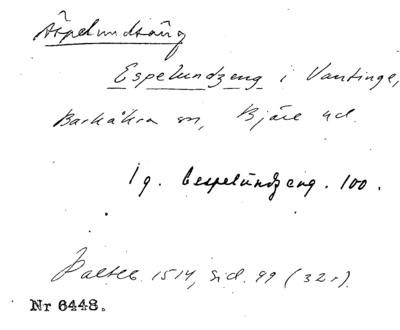 Äspelundsäng
Espelundzeng i Vantinge,
Barkåkra sn, Bjäre hd.
1 g. bespelundzeng. 100.
Paltsb. 1514, sid. 99 (32r).
Nr 6448.